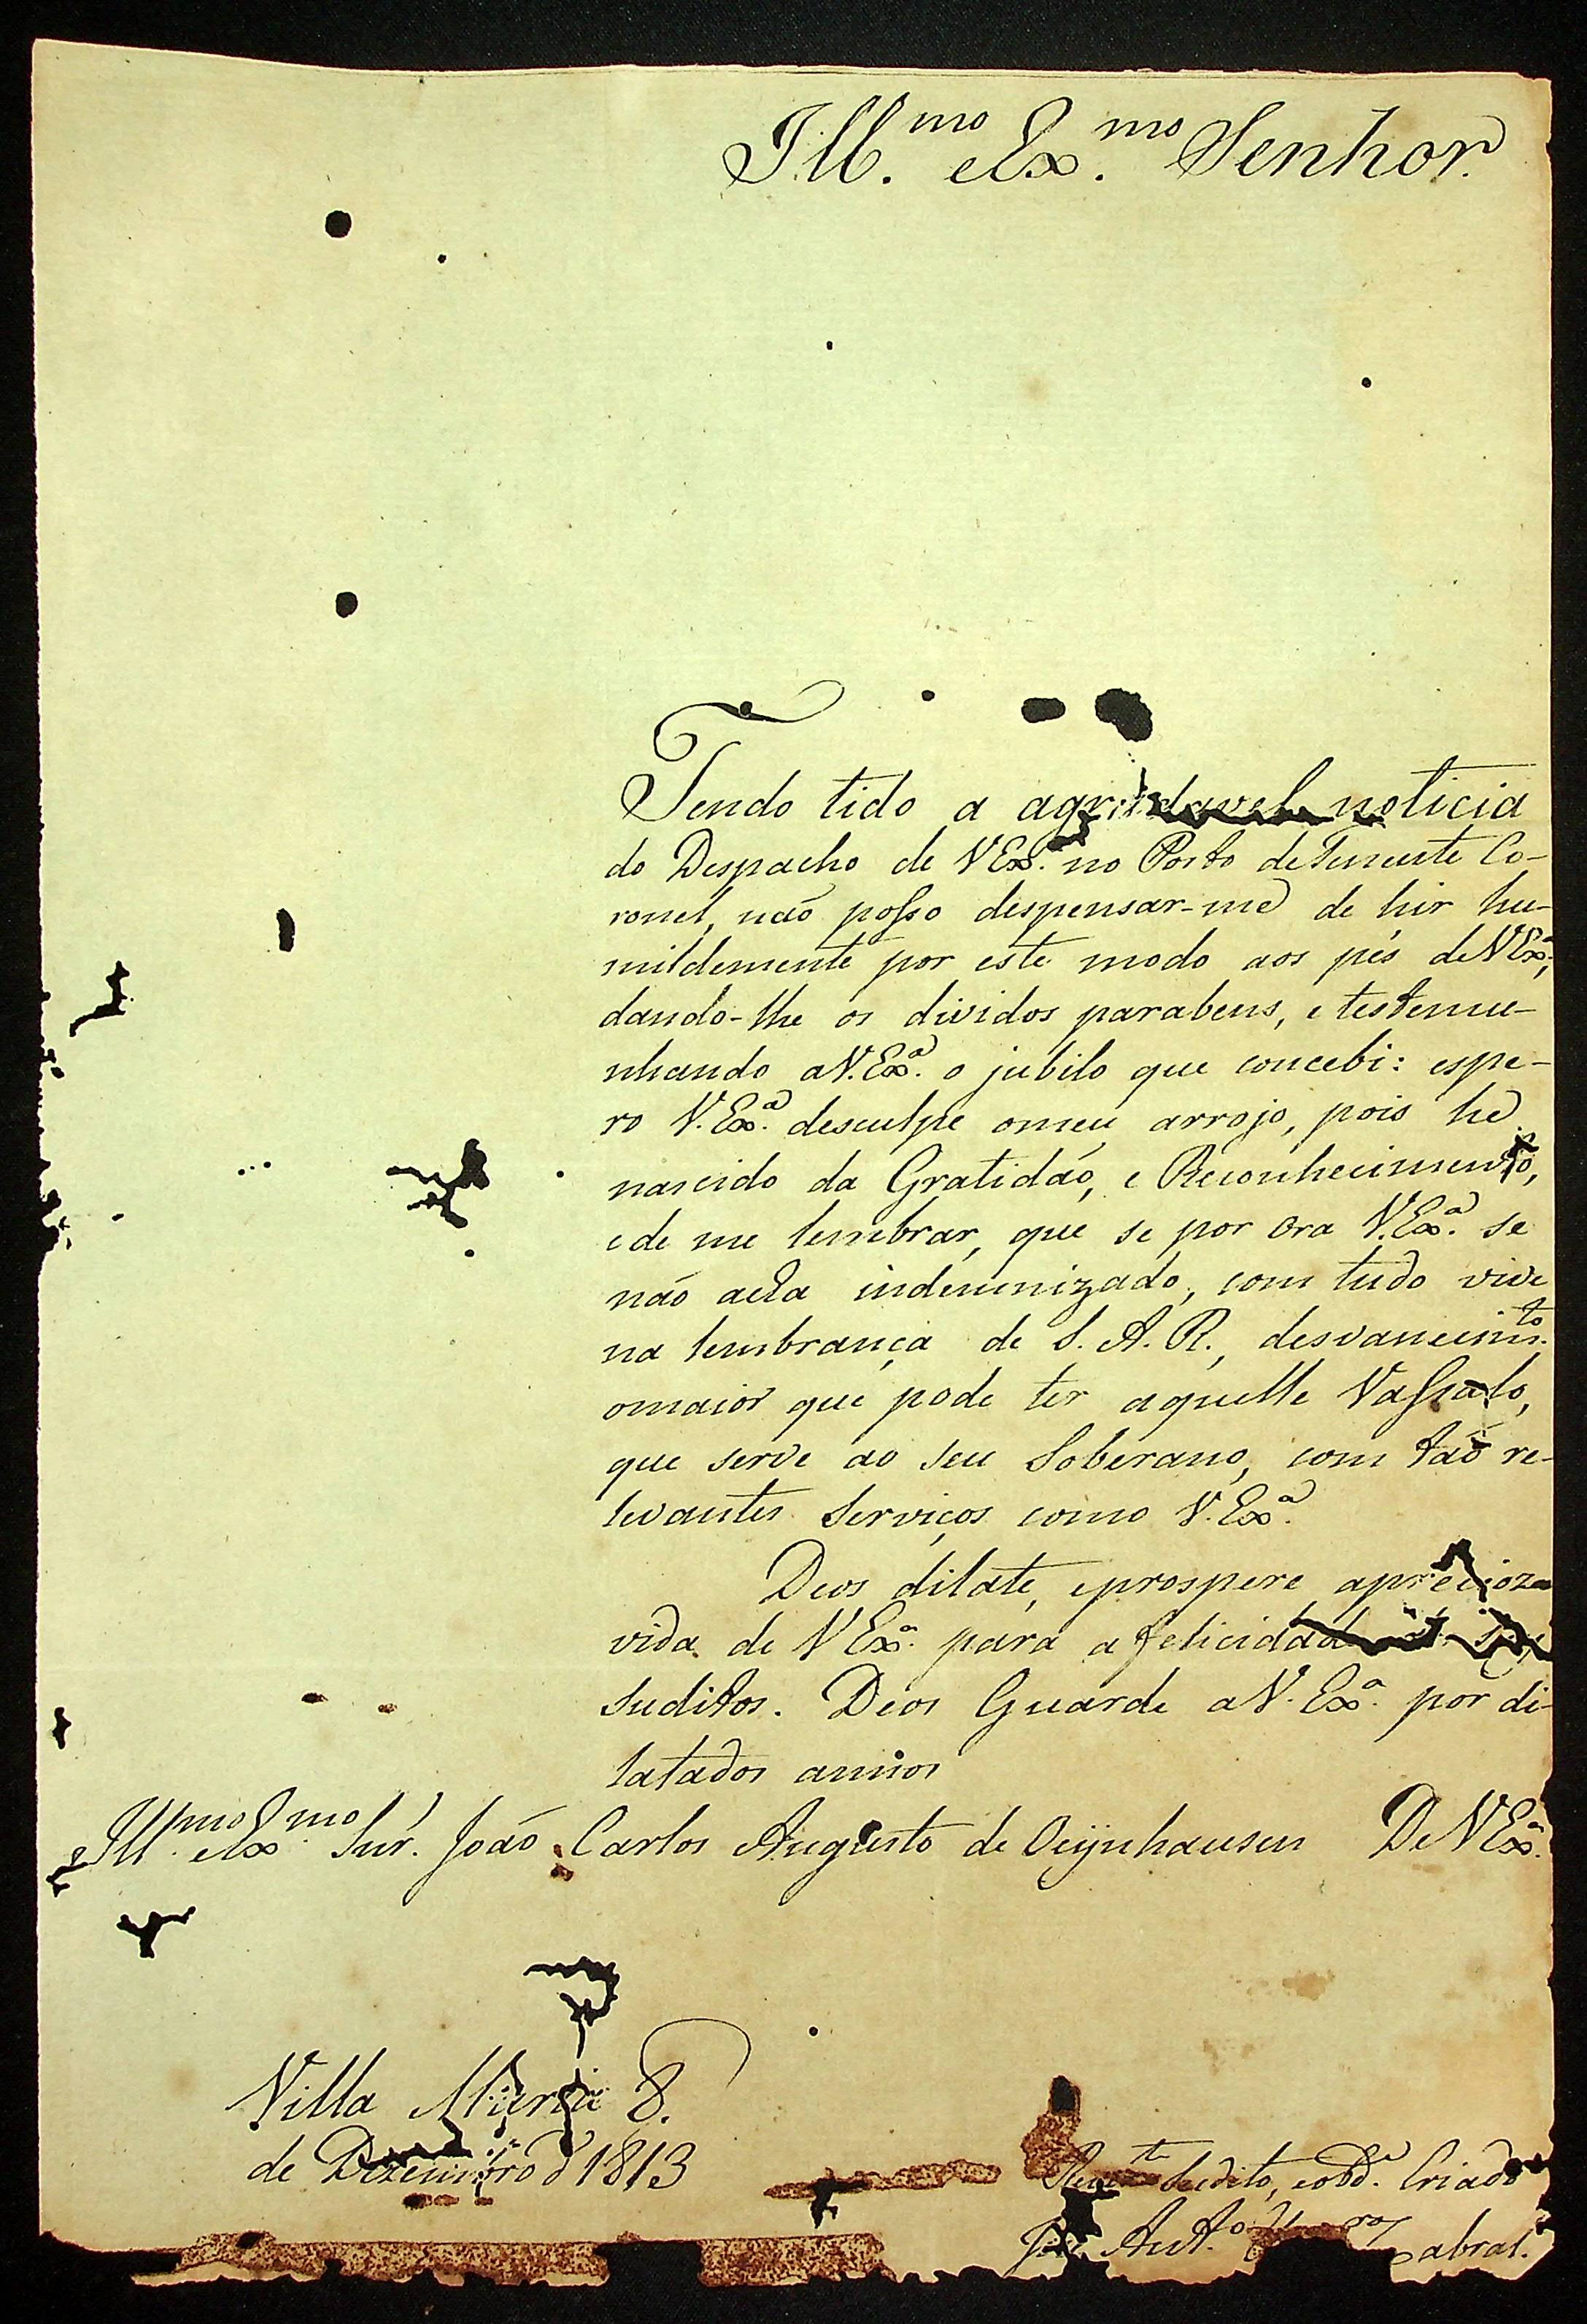 Ill.mo e Ex.mo Senhor.
Tendo tido a agradavel noticia
do Despacho de V Ex.a no Posto de Tenente Co-
ronel, não posso dispensar-me de hir hu-
mildemente por este modo aos pés de V Ex.a,
dando-lhe os dividos parabens, e testemu-
nhando a V. Ex.a o jubilo que concebi: espe-
ro V. Ex.a desculpe o meu arrojo, pois he
nascido da Gratidão, e Reconhecimento,
e de me lembrar, que se por Ora V. Ex.a se
não acha indemnizado, com tudo vive
na lembrança de S. A. R., desvanecim.to
o maior que pode ter aquelle Vassalo,
que serve ao seu Soberano, com tão re-
levantes Serviços como V. Ex.a
Deos dilate, e prospere, a precioza
vida de V Ex.a para a felicidade
suditos. Deos Guarde a V. Ex.a por di-
latados annos
Ill.mo e Ex.mo Snr. João Carlos Augusto de Oeÿnhausen De V Ex.a
Villa Maria 8.
de Dezembro d 1813
Sudito, e obd.e Criado
Ant.o abral.